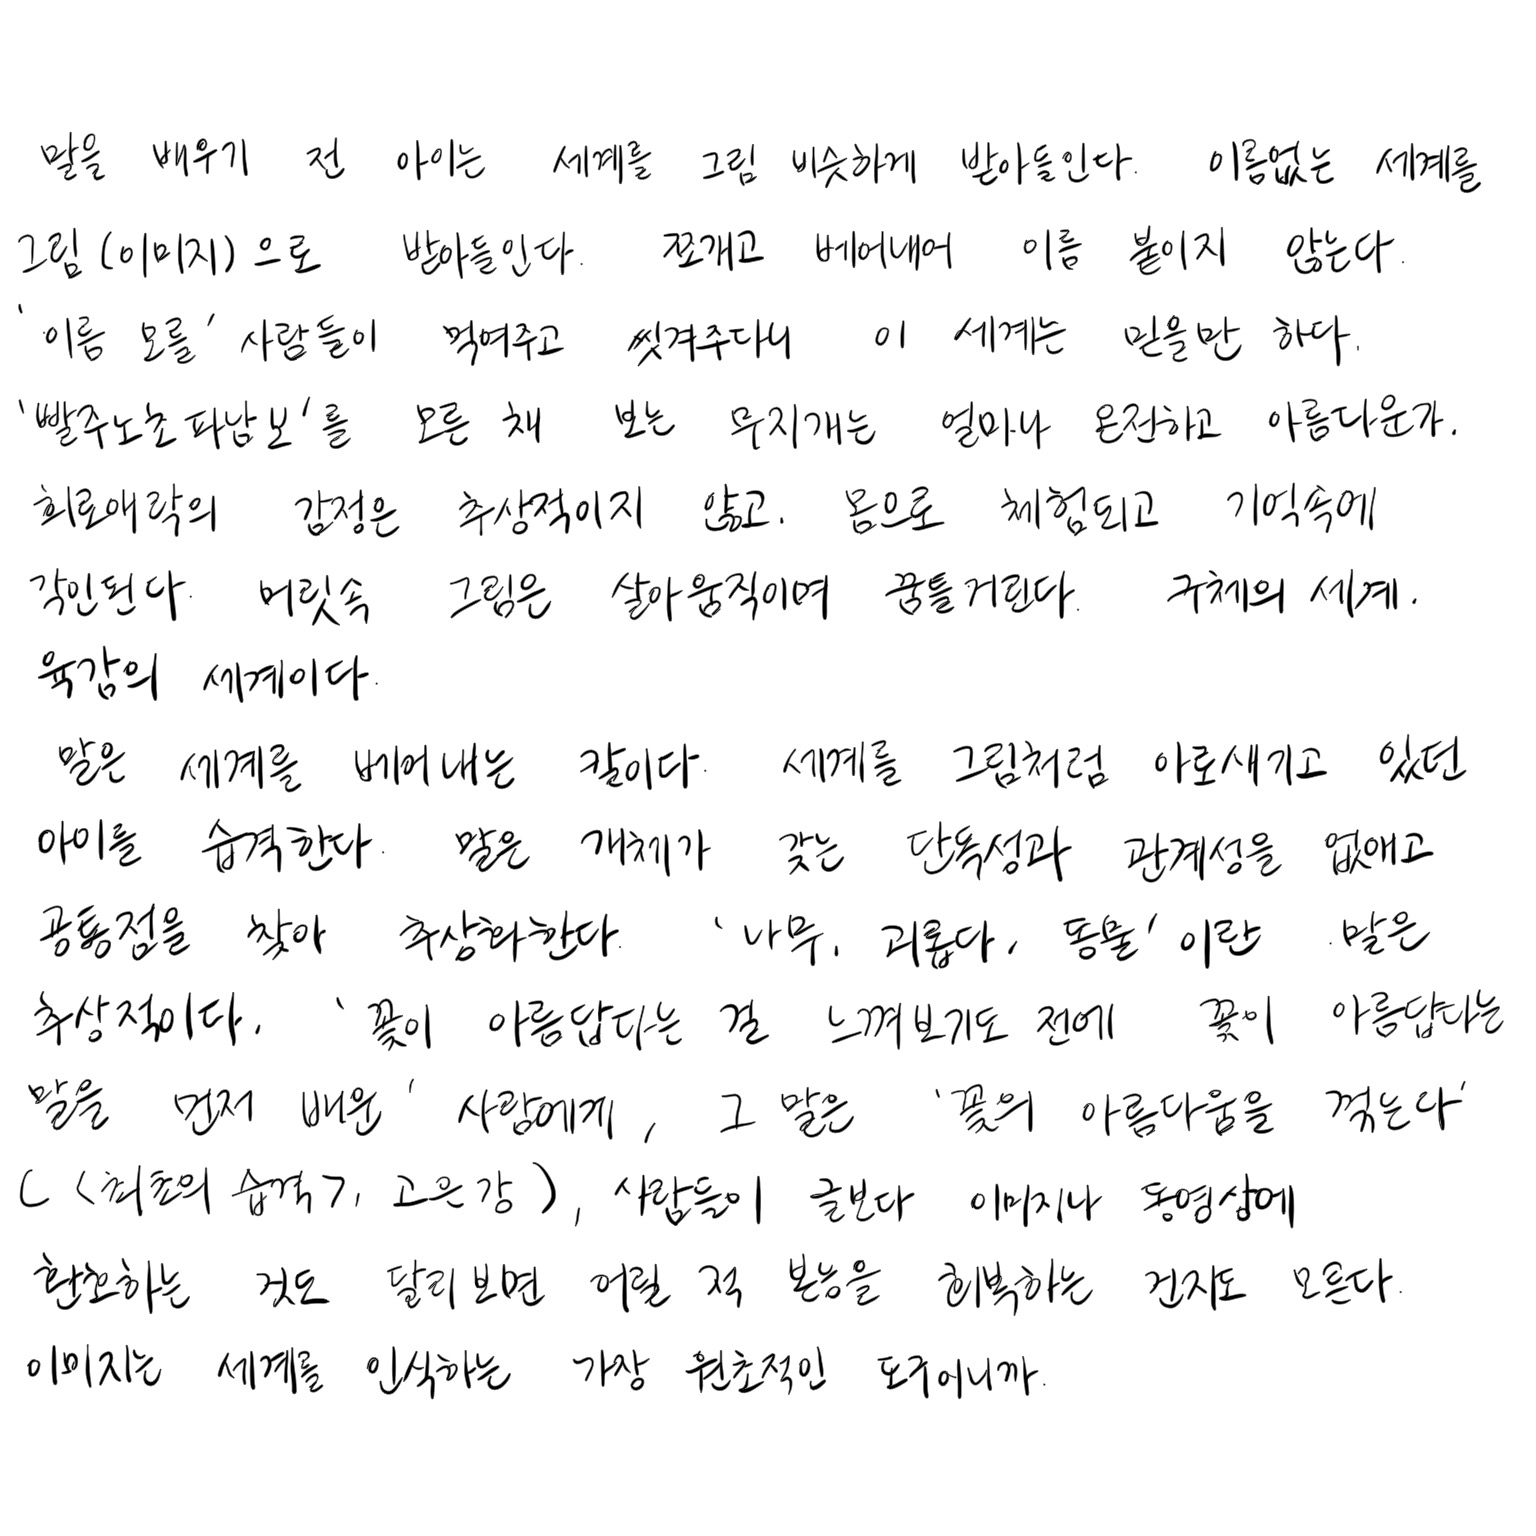 말을 배우기 전 아이는 세계를 그림 비슷하게 받아들인다. 이름없는 세계를
그림(이미지)으로 받아들인다. 쪼개고 베어내어 이름 붙이지 않는다.
'이름 모를' 사람들이 먹여주고 씻겨주다니 이 세계는 믿을만 하다.
'빨주노초파남보'를 모른 채 보는 무지개는 얼마나 온전하고 아름다운가.
희로애락의 감정은 추상적이지 않고, 몸으로 체험되고 기억속에
각인된다. 머릿속 그림은 살아움직이며 꿈틀거린다. 구체의 세계.
육감의 세계이다.
말은 세계를 베어내는 칼이다. 세계를 그림처럼 아로새기고 있던
아이를 습격한다. 말은 개체가 갖는 단독성과 관계성을 없애고
공통점을 찾아 추상화한다. '나무, 괴롭다, 동물'이란 말은
추상적이다. '꽃이 아름답다는 걸 느껴보기도 전에 꽃이 아름답다는
말을 먼저 배운' 사람에게, 그 말은 '꽃의 아름다움을 꺾는다'
(<최초의 습격>, 고은강), 사람들이 글보다 이미지나 동영상에
환호하는 것도 달리보면 어릴 적 본능을 회복하는 건지도 모른다.
이미지는 세계를 인식하는 가장 원초적인 도구이니까.